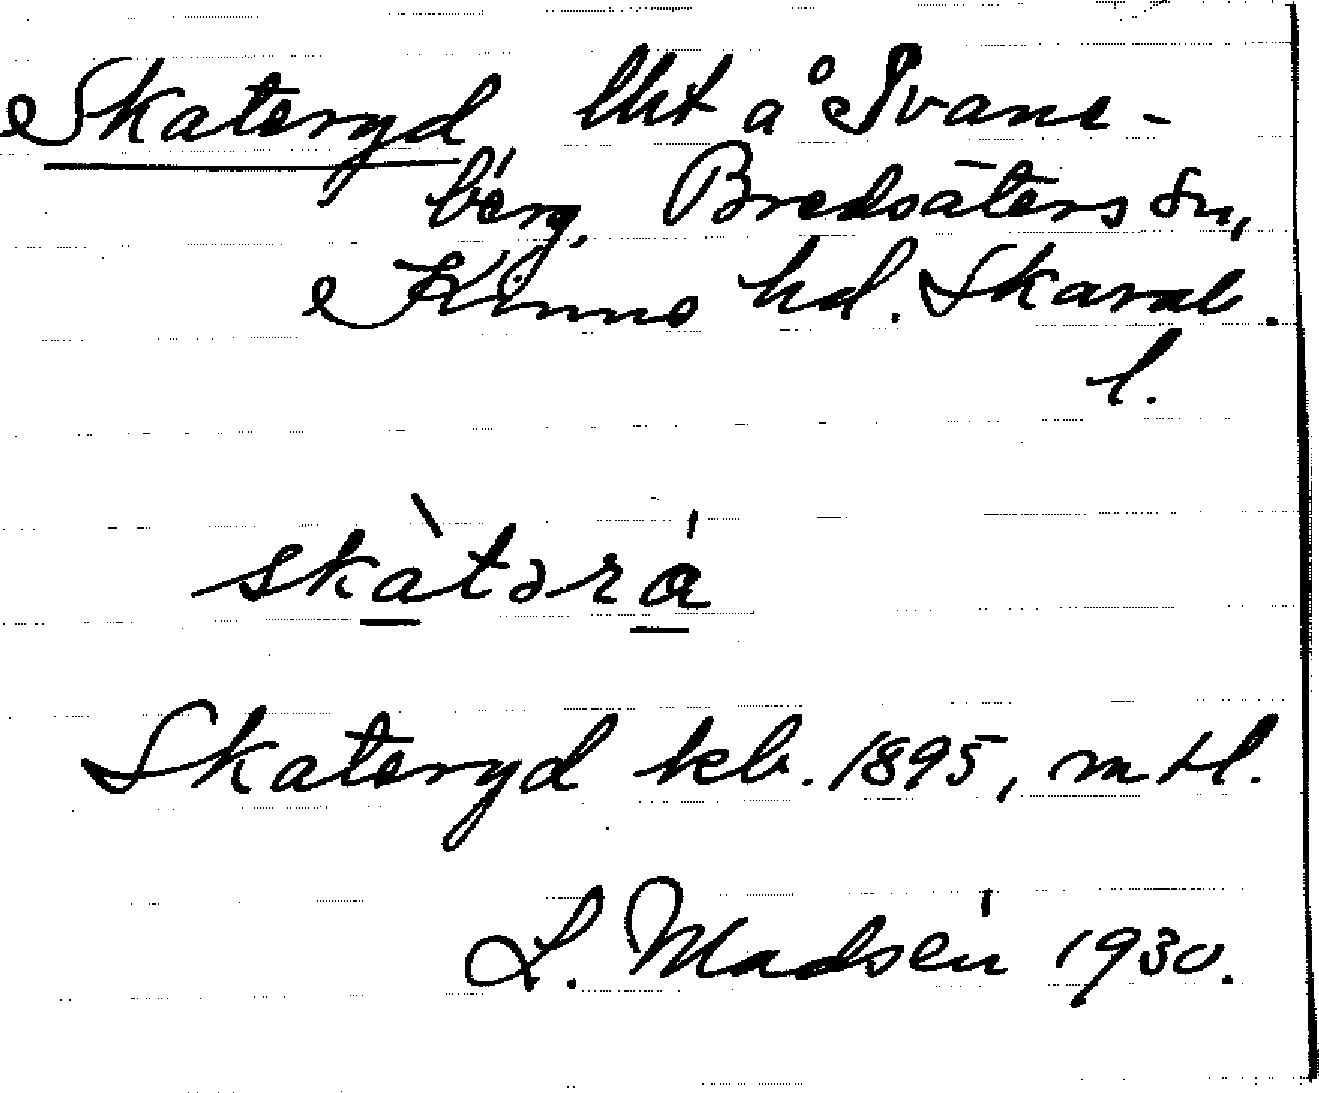 Skateryd lht å Svane-
berg, Bredsäters sn,
Kinne hd. Skarab.
l.
skàtərá
Skateryd kb. 1895, mtl.
L. Madsén 1930.